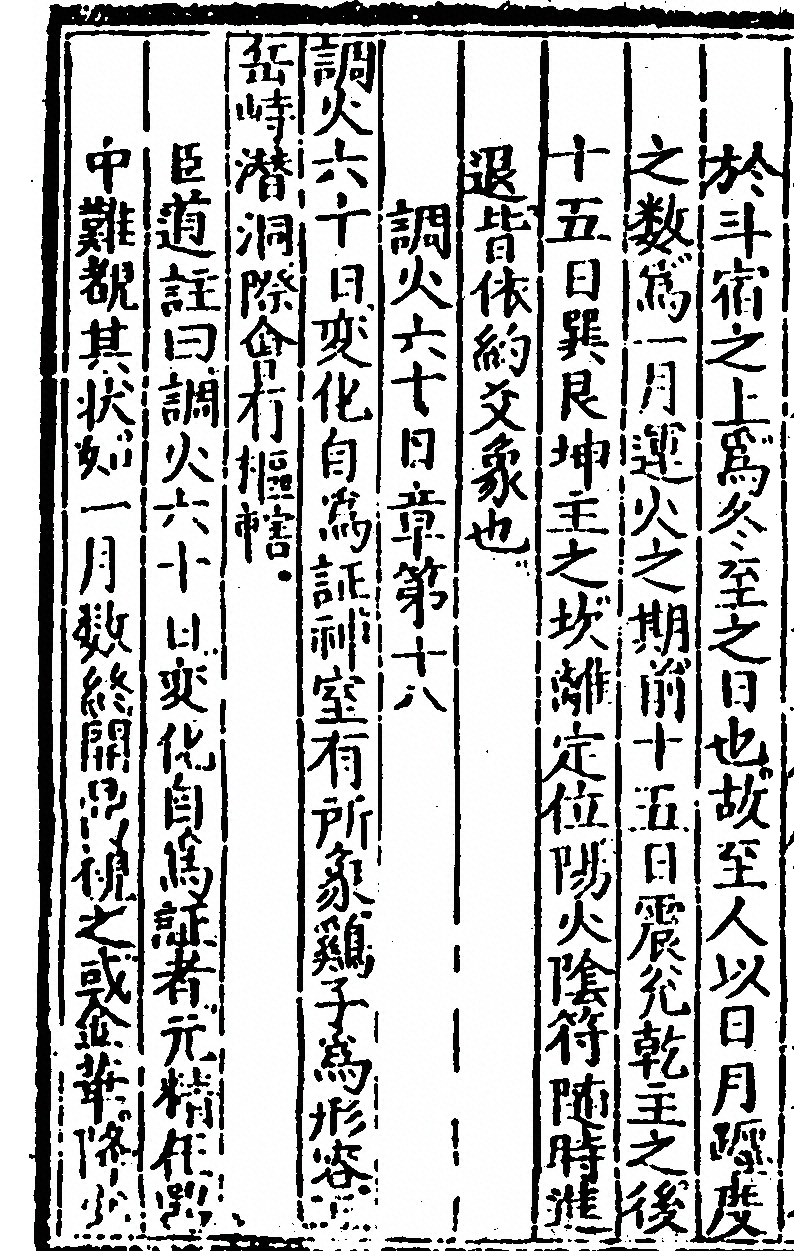 於斗宿之上爲冬至之日也故至人以日月躔度
之数爲一月運火之期前十五日震兊乾主之後
十五日巽艮坤主之坎離定位陽火陰符随時進
退皆依約爻象也
調火六十日章第十八
調火六十日变化自爲証神室有所象鷄子爲形容
岳峙潜洞際會行樞轄
臣道註曰調火六十日变化自爲証者元精在
中難覩其状如一月数終開視之或金華